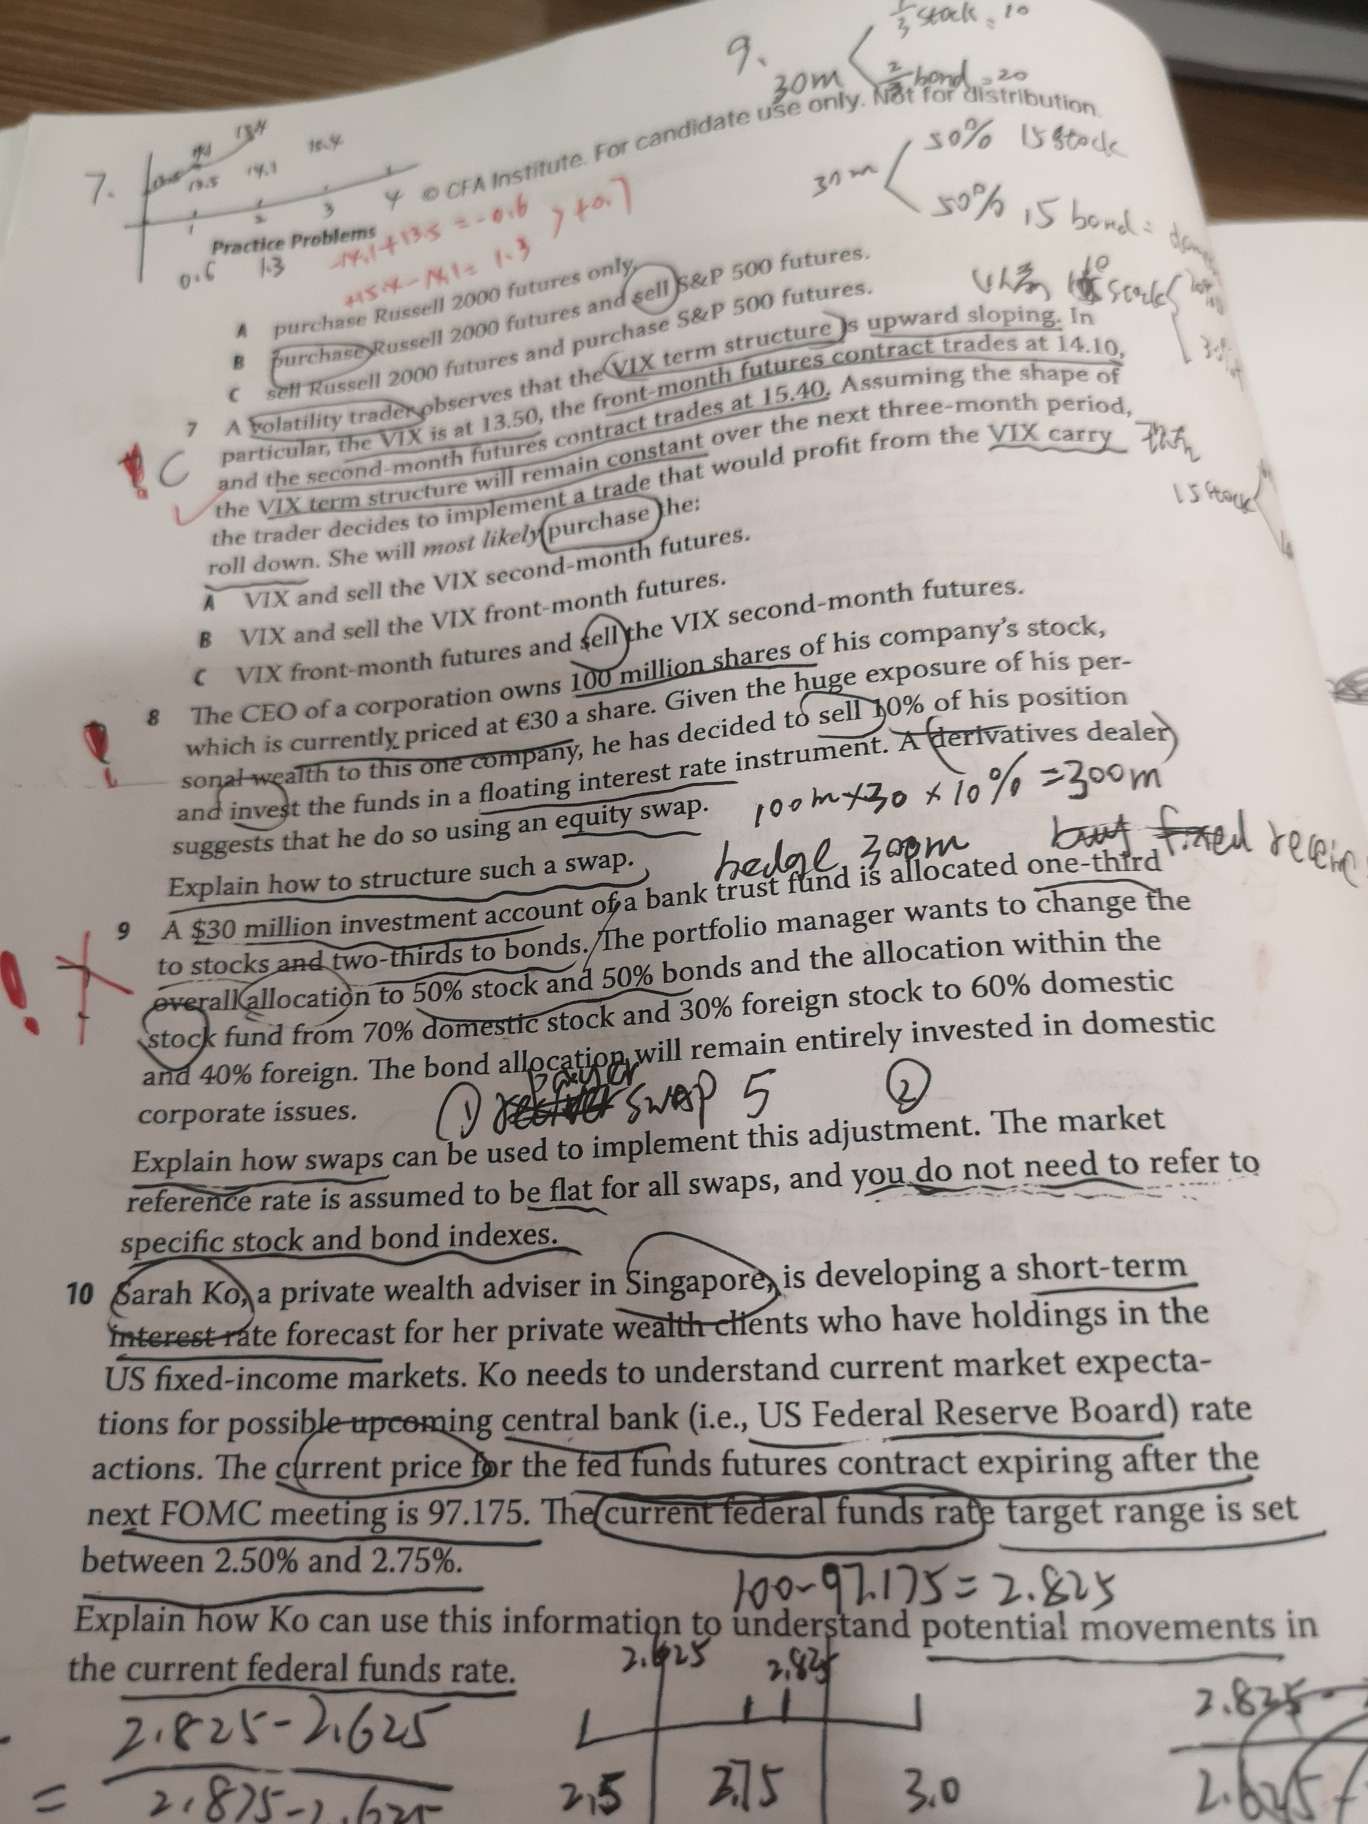 9.
1/3 stock = 10
30m
2/3 bond = 20
© CFA Institute. For candidate use only. Not for distribution.
50% 15 stock
30m
50% 15 bond =
7.
13.5 14.1 15.4
1 2 3 4
Practice Problems
0.6 1.3
-14.1+13.5 = -0.6
+15.4-14.1 = 1.3
> +0.7
A purchase Russell 2000 futures only.
B purchase Russell 2000 futures and sell S&P 500 futures.
C sell Russell 2000 futures and purchase S&P 500 futures.
7 A volatility trader observes that the VIX term structure is upward sloping. In
particular, the VIX is at 13.50, the front-month futures contract trades at 14.10,
and the second-month futures contract trades at 15.40. Assuming the shape of
the VIX term structure will remain constant over the next three-month period,
the trader decides to implement a trade that would profit from the VIX carry
roll down. She will most likely purchase the:
C
15 stock
A VIX and sell the VIX second-month futures.
B VIX and sell the VIX front-month futures.
C VIX front-month futures and sell the VIX second-month futures.
8 The CEO of a corporation owns 100 million shares of his company's stock,
which is currently priced at €30 a share. Given the huge exposure of his per-
sonal wealth to this one company, he has decided to sell 10% of his position
and invest the funds in a floating interest rate instrument. A derivatives dealer
suggests that he do so using an equity swap.
100m×30×10% =300m
Explain how to structure such a swap.
hedge 300m
9 A $30 million investment account of a bank trust fund is allocated one-third
to stocks and two-thirds to bonds. The portfolio manager wants to change the
overall allocation to 50% stock and 50% bonds and the allocation within the
stock fund from 70% domestic stock and 30% foreign stock to 60% domestic
and 40% foreign. The bond allocation will remain entirely invested in domestic
corporate issues.
① payer swap 5 ②
Explain how swaps can be used to implement this adjustment. The market
reference rate is assumed to be flat for all swaps, and you do not need to refer to
specific stock and bond indexes.
10 Sarah Ko, a private wealth adviser in Singapore, is developing a short-term
interest rate forecast for her private wealth clients who have holdings in the
US fixed-income markets. Ko needs to understand current market expecta-
tions for possible upcoming central bank (i.e., US Federal Reserve Board) rate
actions. The current price for the fed funds futures contract expiring after the
next FOMC meeting is 97.175. The current federal funds rate target range is set
between 2.50% and 2.75%.
100-97.175=2.825
Explain how Ko can use this information to understand potential movements in
the current federal funds rate.
2.625 2.825
2.825-2.625
2.825
= 2.875-2.625
2.5 2.75 3.0
2.625